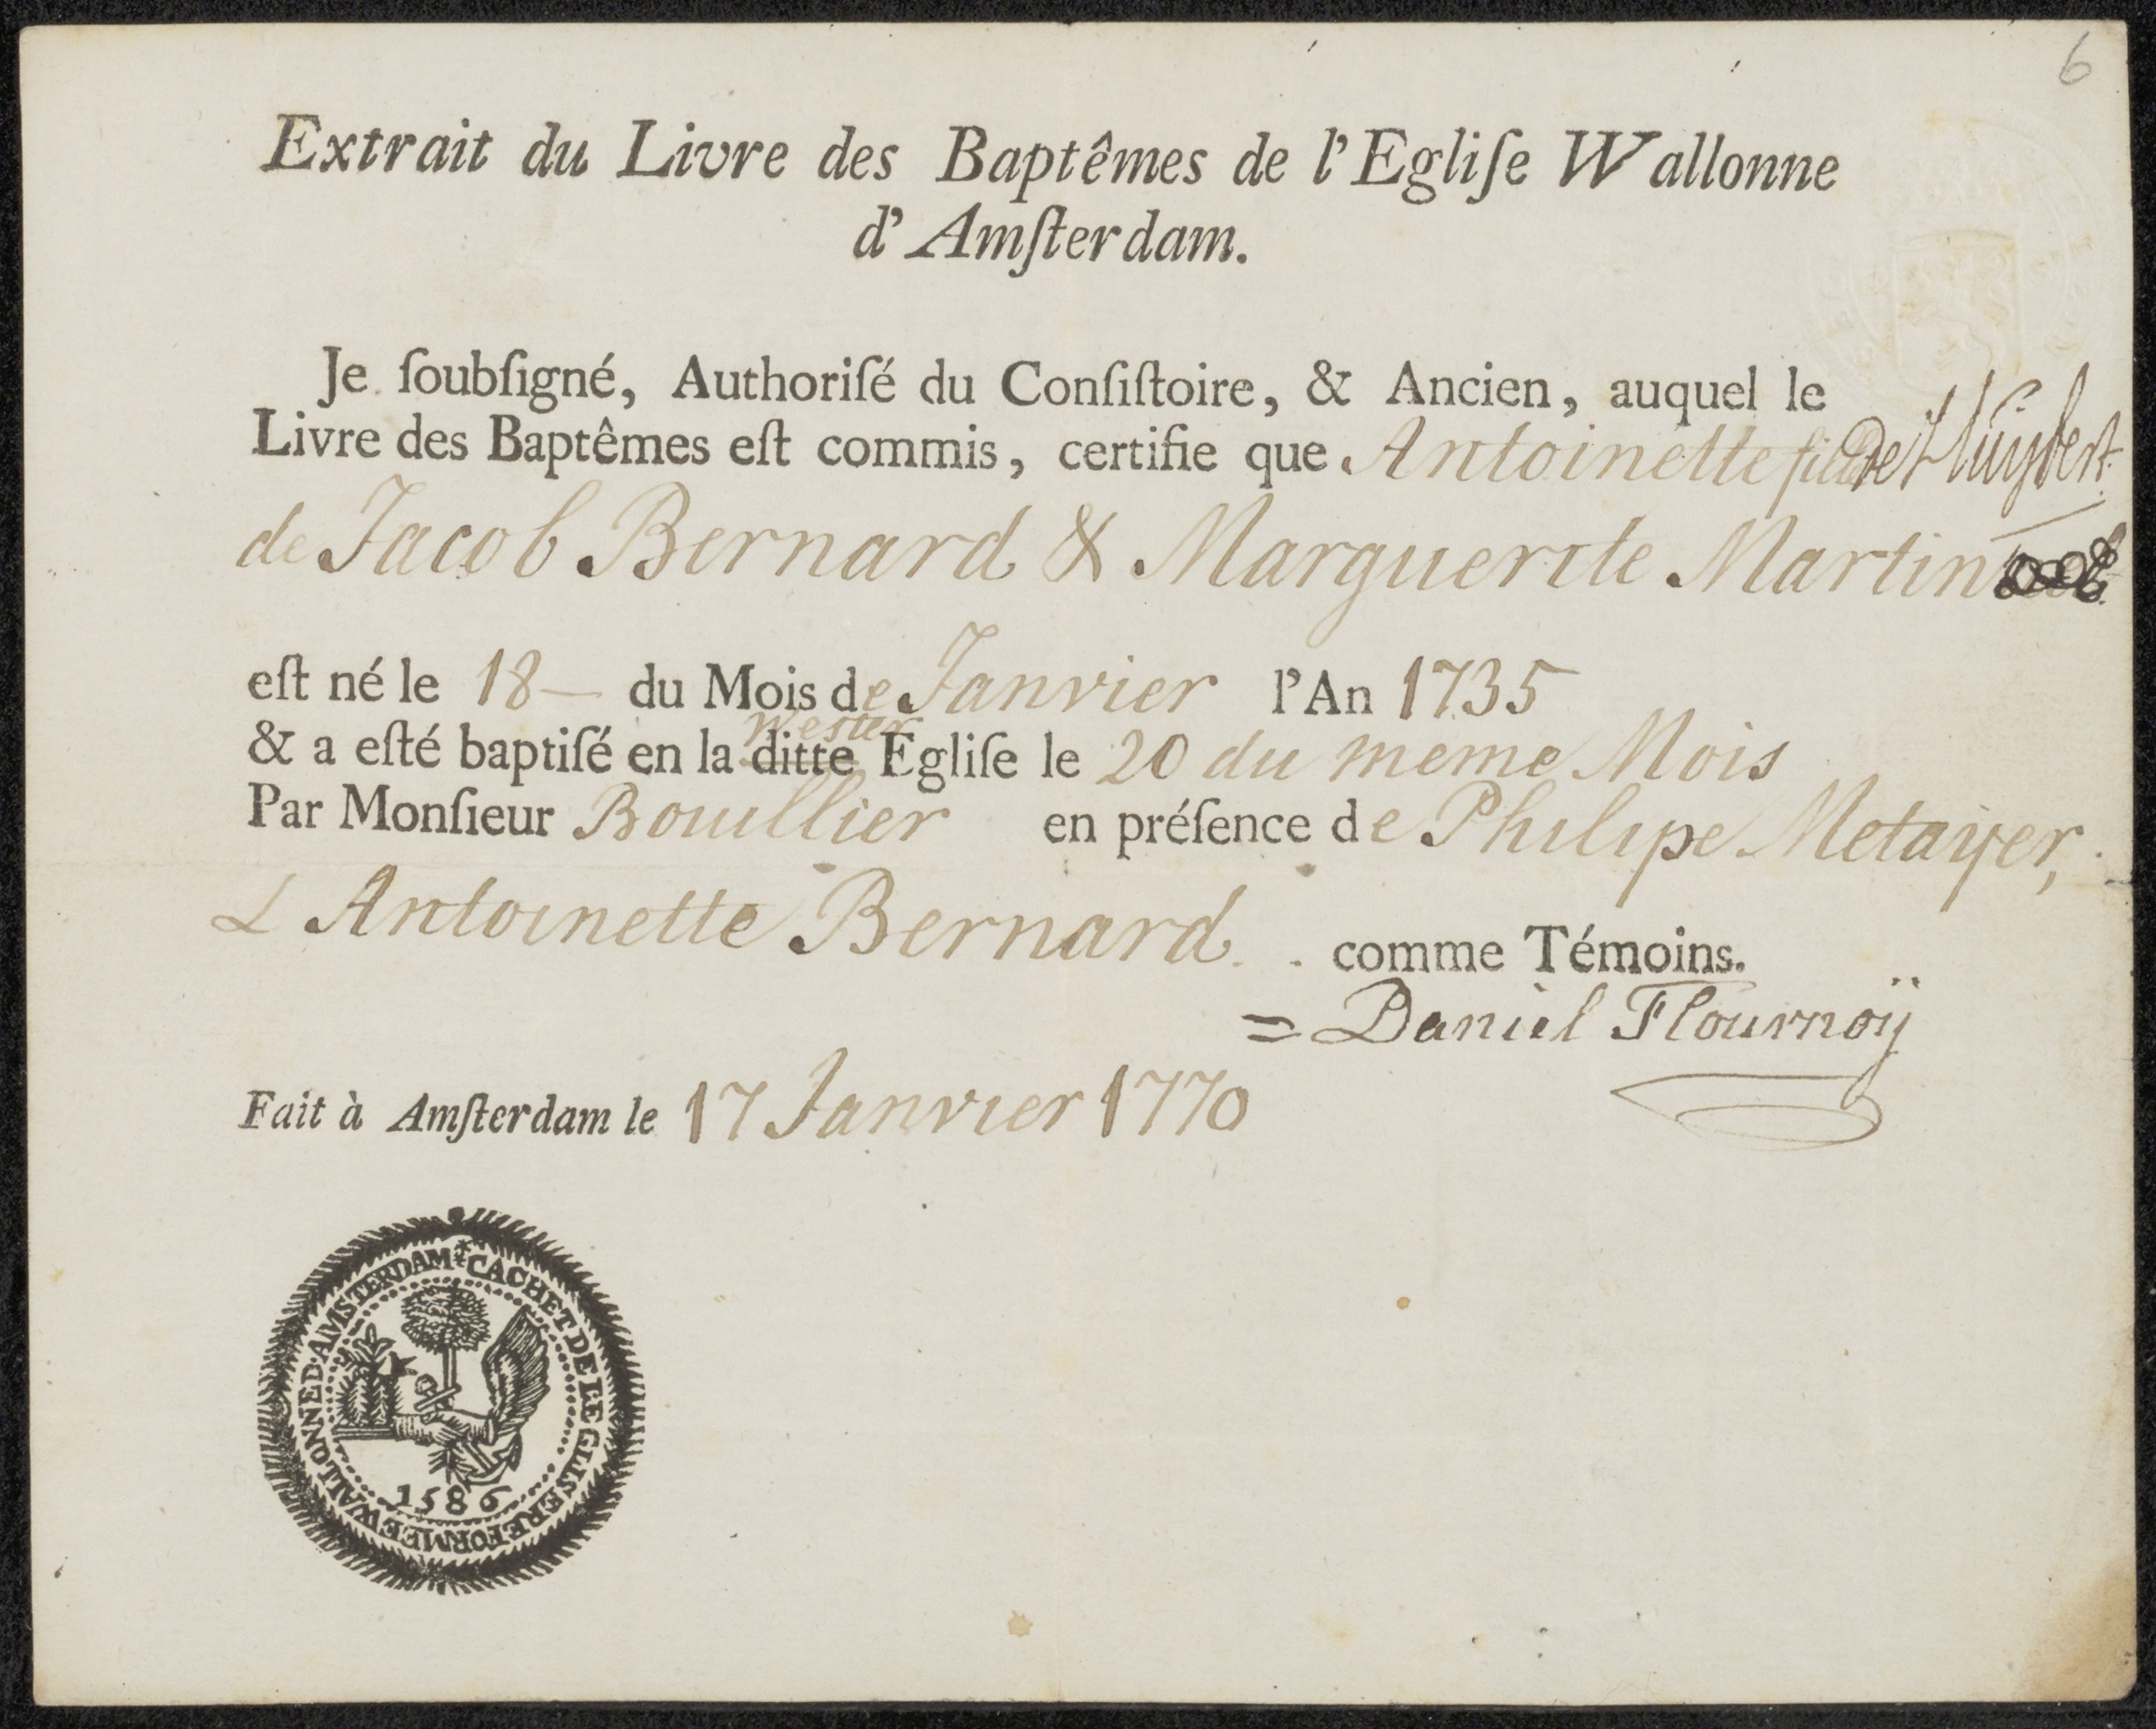 6
Extrait du Livre des Baptêmes de l'Egliſe Wallonne
d'Amſterdam.
Je ſoubſigné, Authoriſé du Conſiſtoire, & Ancien, auquel le
Livre des Baptêmes eſt commis, certifie que Antoinette fille De Huijbert
de Jacob Bernard & Marguerite Martin
eſt né le 18 — du Mois de Janvier l'An 1735
Wester
& a eſté baptiſé en la ditte Egliſe le 20 du meme Mois
Par Monſieur Bouillier en préſence de Philipe Metaijer,
& Antoinette Bernard. comme Témoins.
= Daniel Flournoÿ
Fait à Amſterdam le 17 Janvier 1770
CACHET DE LEGLISE REFORMEE WALLONNE D·AMSTERDAM
1586